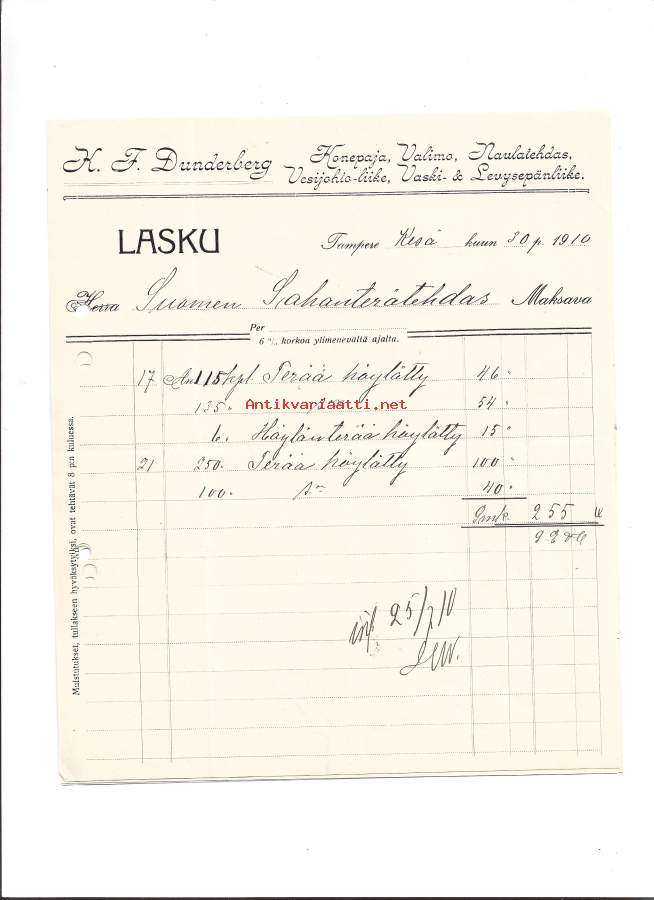 K. F. Dunderberg
Konepaja, Valimo, Naulatehdas,
Vesijohto-liike, Vaski- & Levysepänliike.
LASKU
Tampere Kesä kuun 30 p. 1910
Herra Suomen Sahanterätehdas Maksava
Per
6 % korkoa ylimenevältä ajalta.
17 An 115 kpl. Terää höylätty 46 "
135 " 54 "
Antikvariaatti.net
6 " Höylänterää höylätty 15 "
21 250 " Terää höylätty 100 "
100 " 40 "
Smk. 255
25/7 10
Muistutukset, tullakseen hyväksytyiksi, ovat tehtävät 8 p:n kuluessa.